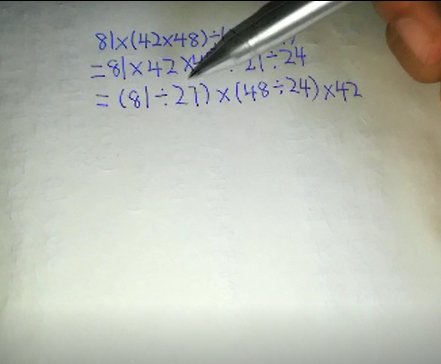 81×(42×48)÷
=81×42×4 ÷ 21÷24
=(81÷27)×(48÷24)×42